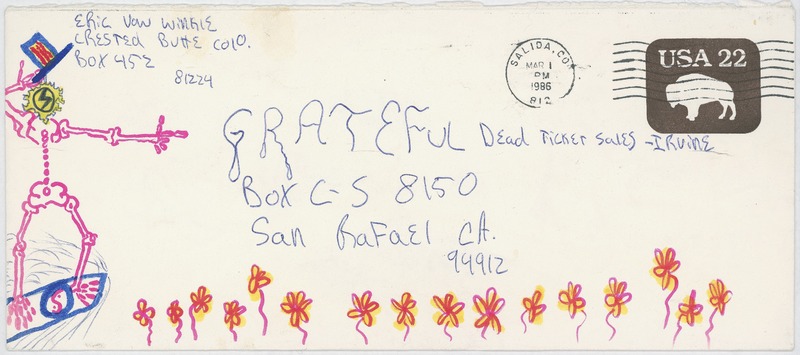 Eric Van Winkle
Crested Butte Colo.
Box 452
81224
SALIDA, CO
MAR 1
PM
1986
812
USA 22
GRATEFUL Dead Ticket Sales - Irvine
Box C-S 8150
San Rafael CA.
94912
S